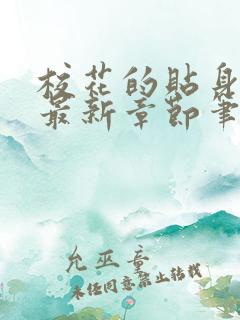 校花的贴身
最新章节笔
允巫章
未经同意禁止转载